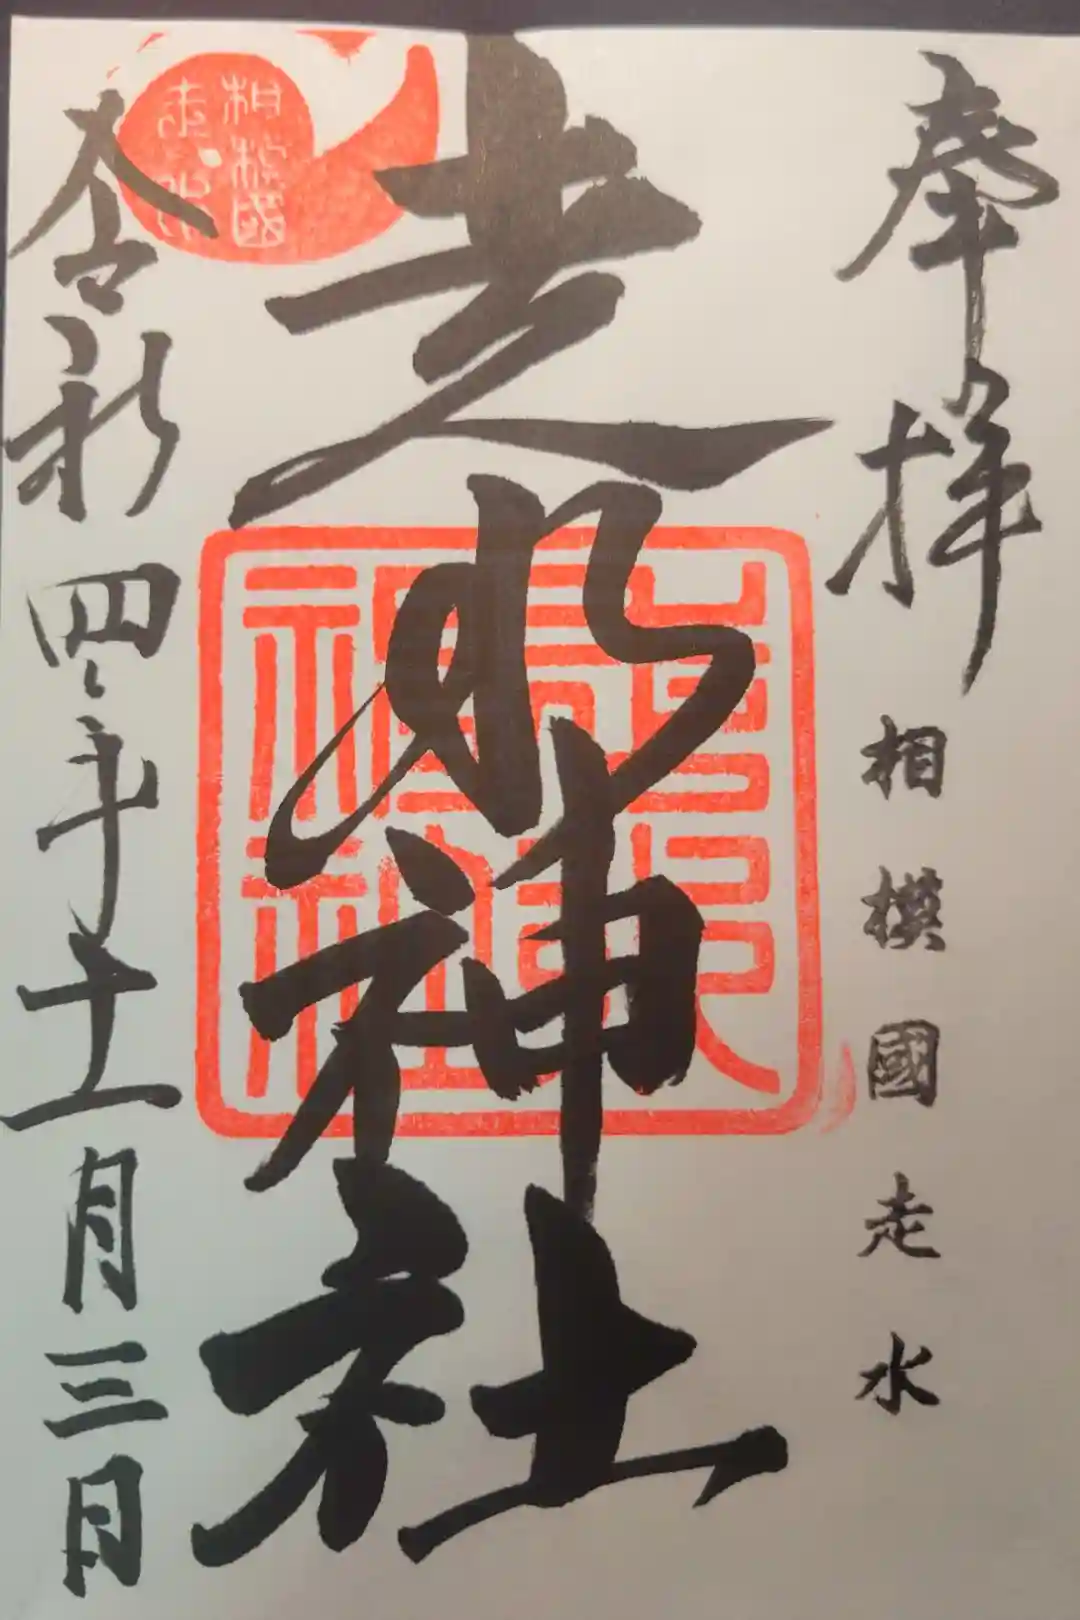 奉拝
相模國走水
走水神社
令和四年十一月三日
相模國
走水